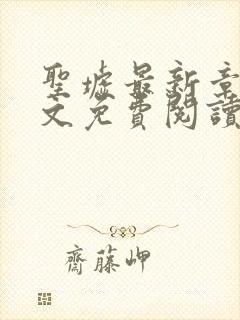 聖墟最新章
文免費閱讀
齋藤岬